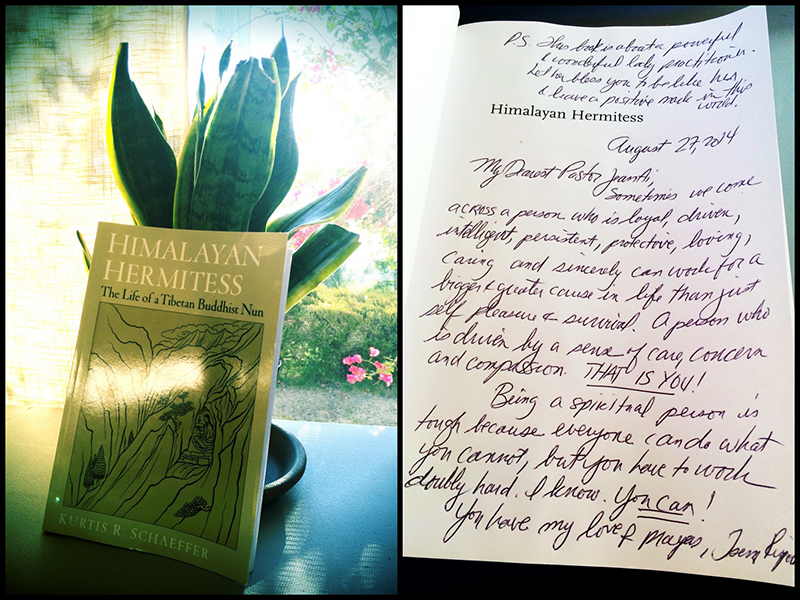 HIMALAYAN
HERMITESS
The Life of a Tibetan Buddhist Nun
KURTIS R. SCHAEFFER
P.S. This book is about a powerful
& wonderful lady practitioner.
Let her bless you to be like her,
& leave a positive mark in this
world.
Himalayan Hermitess
August 27, 2014
My Dearest Pastor
Sometimes we come
across a person who is loyal, driven,
intelligent, persistent, protective, loving,
caring and sincerely can work for a
bigger & greater cause in life than just
self pleasure & survival. A person who
is driven by a sense of care, concern
and compassion. THAT IS YOU!
Being a spiritual person is
tough because everyone can do what
you cannot, but you have to work
doubly hard. I know. You can!
You have my love & prayers,